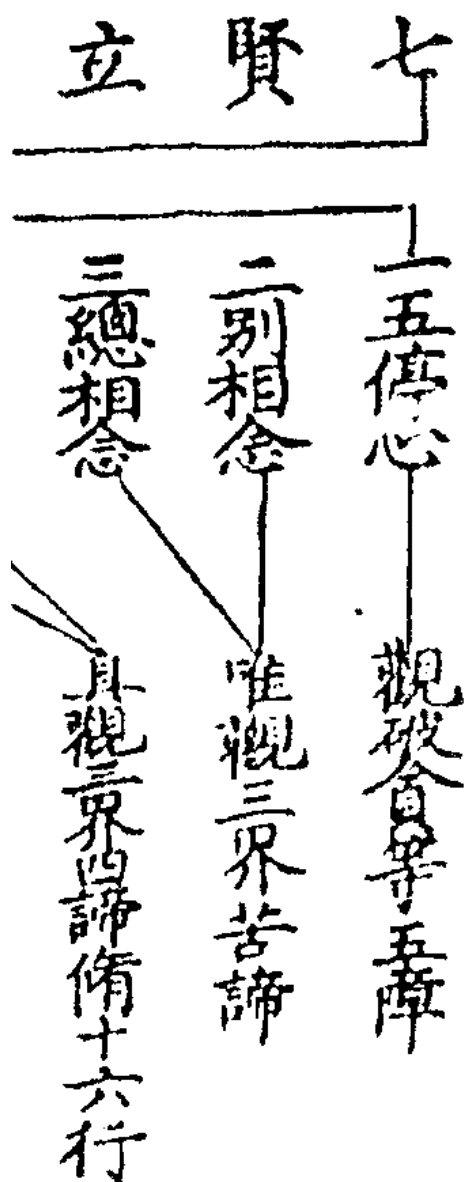 七賢立
一五停心
二別相念
三總相念
觀破貪等五障
唯觀三界苦諦
具觀三界四諦脩十六行